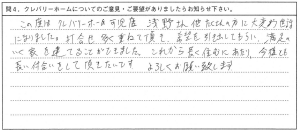 問4. クレバリーホームについてのご意見・ご要望がありましたらお知らせ下さい。
この度は クレバリーホーム 可児店 浅野様、他たくさんの方に大変お世話
になりました。打合せも多く重ねて頂き、希望を引き出してもらい、満足の
いく家を建てることができました。これから長く住むにあたり、今後とも
長い付合いをして頂きたいです よろしくお願い致します